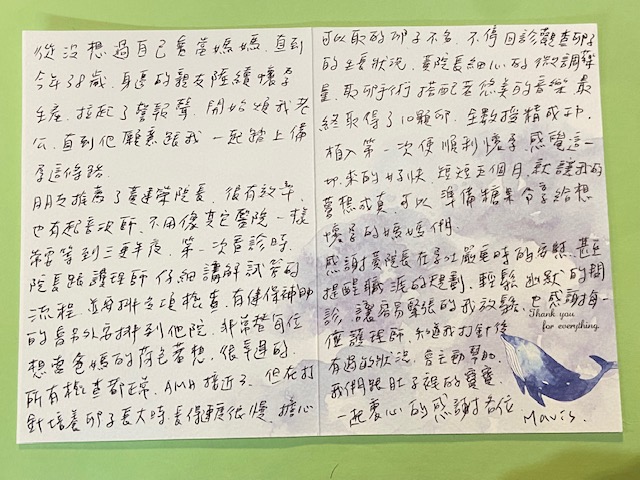 從沒想過自己會當媽媽,直到
今年38歲,身邊的親友陸續懷孕
生產,拉起了警報聲,開始煩我老
公,直到他願意跟我一起踏上備
孕這條路.
朋友推薦了黃建榮院長,很有效率,
也有起長次師,不用像其它醫院一樣
需等到三更半夜,第一次看診時,
院長跟護理師仔細講解試管的
流程,並安排各項檢查,有健保補助
的會另外安排到他院,非常替每位
想當爸媽的荷包著想,很幸運的,
所有檢查都正常,AMH接近3,但在打
針培養卵子長大時,長得速度很慢,擔心
可以取的卵子不多,不停回診觀查卵子
的生長狀況,黃院長細心的微調藥
量,取卵手術搭配著悠美的音樂,最
終取得了10顆卵,全數授精成功,
植入第一次便順利懷孕,感覺這一
切來的好快,短短五個月,就讓我的
夢想成真,可以準備糖果分享給想
懷孕的媽媽們.
感謝黃院長在孕吐嚴重時的安慰,甚至
提醒職涯的規劃,輕鬆幽默的問
診,讓容易緊張的我放鬆,也感謝每一
位護理師,知道我打針後
有過的狀況,會主動幫忙,
我們跟肚子裡的寶寶
一起衷心的感謝各位
Mavis.
Thank you
for everything.